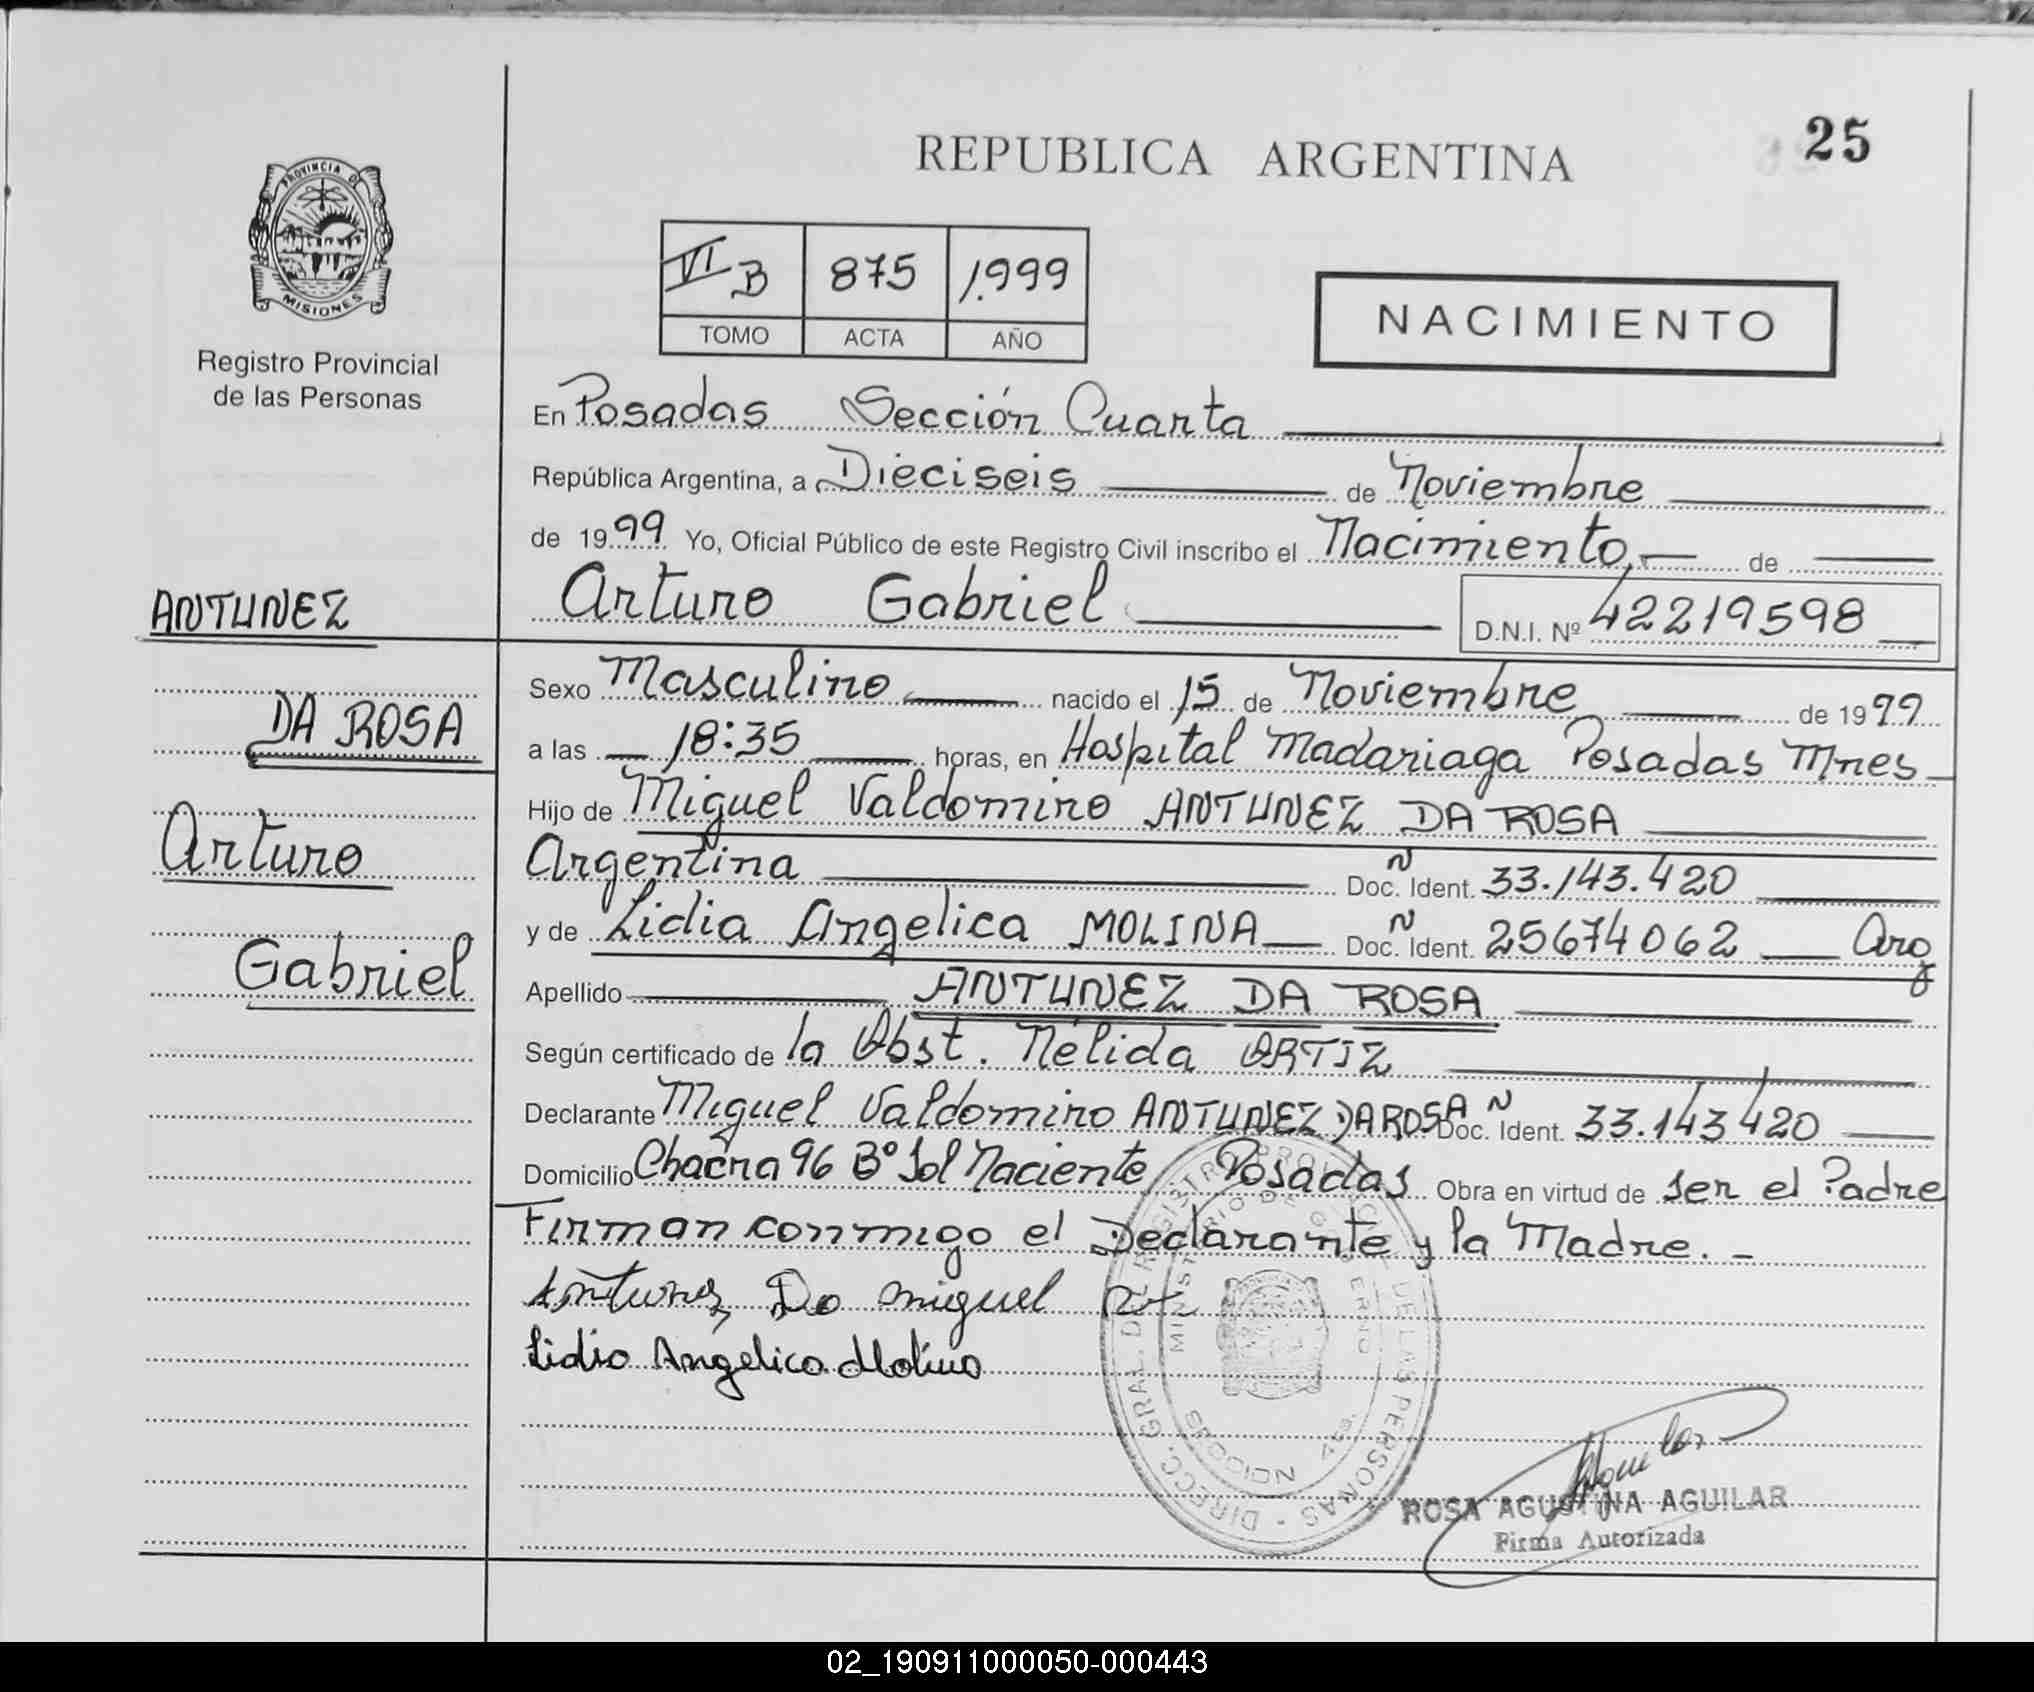 25
REPUBLICA ARGENTINA
PROVINCIA DE
MISIONES
Registro Provincial
de las Personas
VI B 875 1.999
TOMO ACTA AÑO
NACIMIENTO
En Posadas Sección Cuarta
República Argentina, a Dieciseis de Noviembre
de 1999 Yo, Oficial Público de este Registro Civil inscribo el Nacimiento de
Arturo Gabriel D.N.I. Nº 42219598
ANTUNEZ
DA ROSA
Arturo
Gabriel
Sexo Masculino nacido el 15 de Noviembre de 1999
a las 18:35 horas, en Hospital Madariaga Posadas Mnes
Hijo de Miguel Valdomiro ANTUNEZ DA ROSA
Argentina Doc. Ident. 33.143.420
y de Lidia Angelica MOLINA Doc. Ident. 25674062 Arg
Apellido ANTUNEZ DA ROSA
Según certificado de la Obst. Nélida ORTIZ
Declarante Miguel Valdomiro ANTUNEZ DA ROSA Doc. Ident. 33.143420
Domicilio Chacra 96 Bº Sol Naciente Posadas Obra en virtud de ser el Padre
Firman conmigo el Declarante y la Madre. -
Antunez Da miguel
Lidia Angelica Molina
DIRECC. GRAL. DEL REGISTRO PROVINCIAL DE LAS PERSONAS
MINISTERIO DE GOBIERNO
POSADAS
Aguilar
ROSA AGUSTINA AGUILAR
Firma Autorizada
02_190911000050-000443